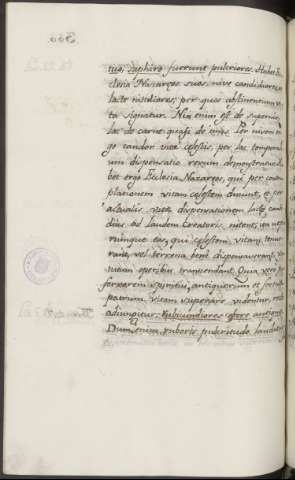 tuo, saphiro fuerunt pulcriores. Habet Ec
clesia Nazareos suos nive candidiores, et
lacte nitidiores, per quos abstinentium vi
ta signatur. Nix enim est de supernis,
lac de carne quasi de imis. Per nivem er
go candor vitæ celestis, per lac temporali
um dispensatio rerum demonstratur. Ha
bet ergo Ecclesia Nazareos, qui per contem
plationem vitam celestem ducunt, et per
actualis vitæ dispensationem lacte candi
dius ad laudem Creatoris nitent,
rumque eas, qui celestem vitam
rant, vel terrena bene dispensaverant, vir
tutum operibus transcendant. Quia vero per
fervorem spiritus, antiquorum et fortium
patrum vitam superare videntur, recte
adiungitur: Rubicundiores ebore antiquo.
Dum enim ruboris pulcritudo